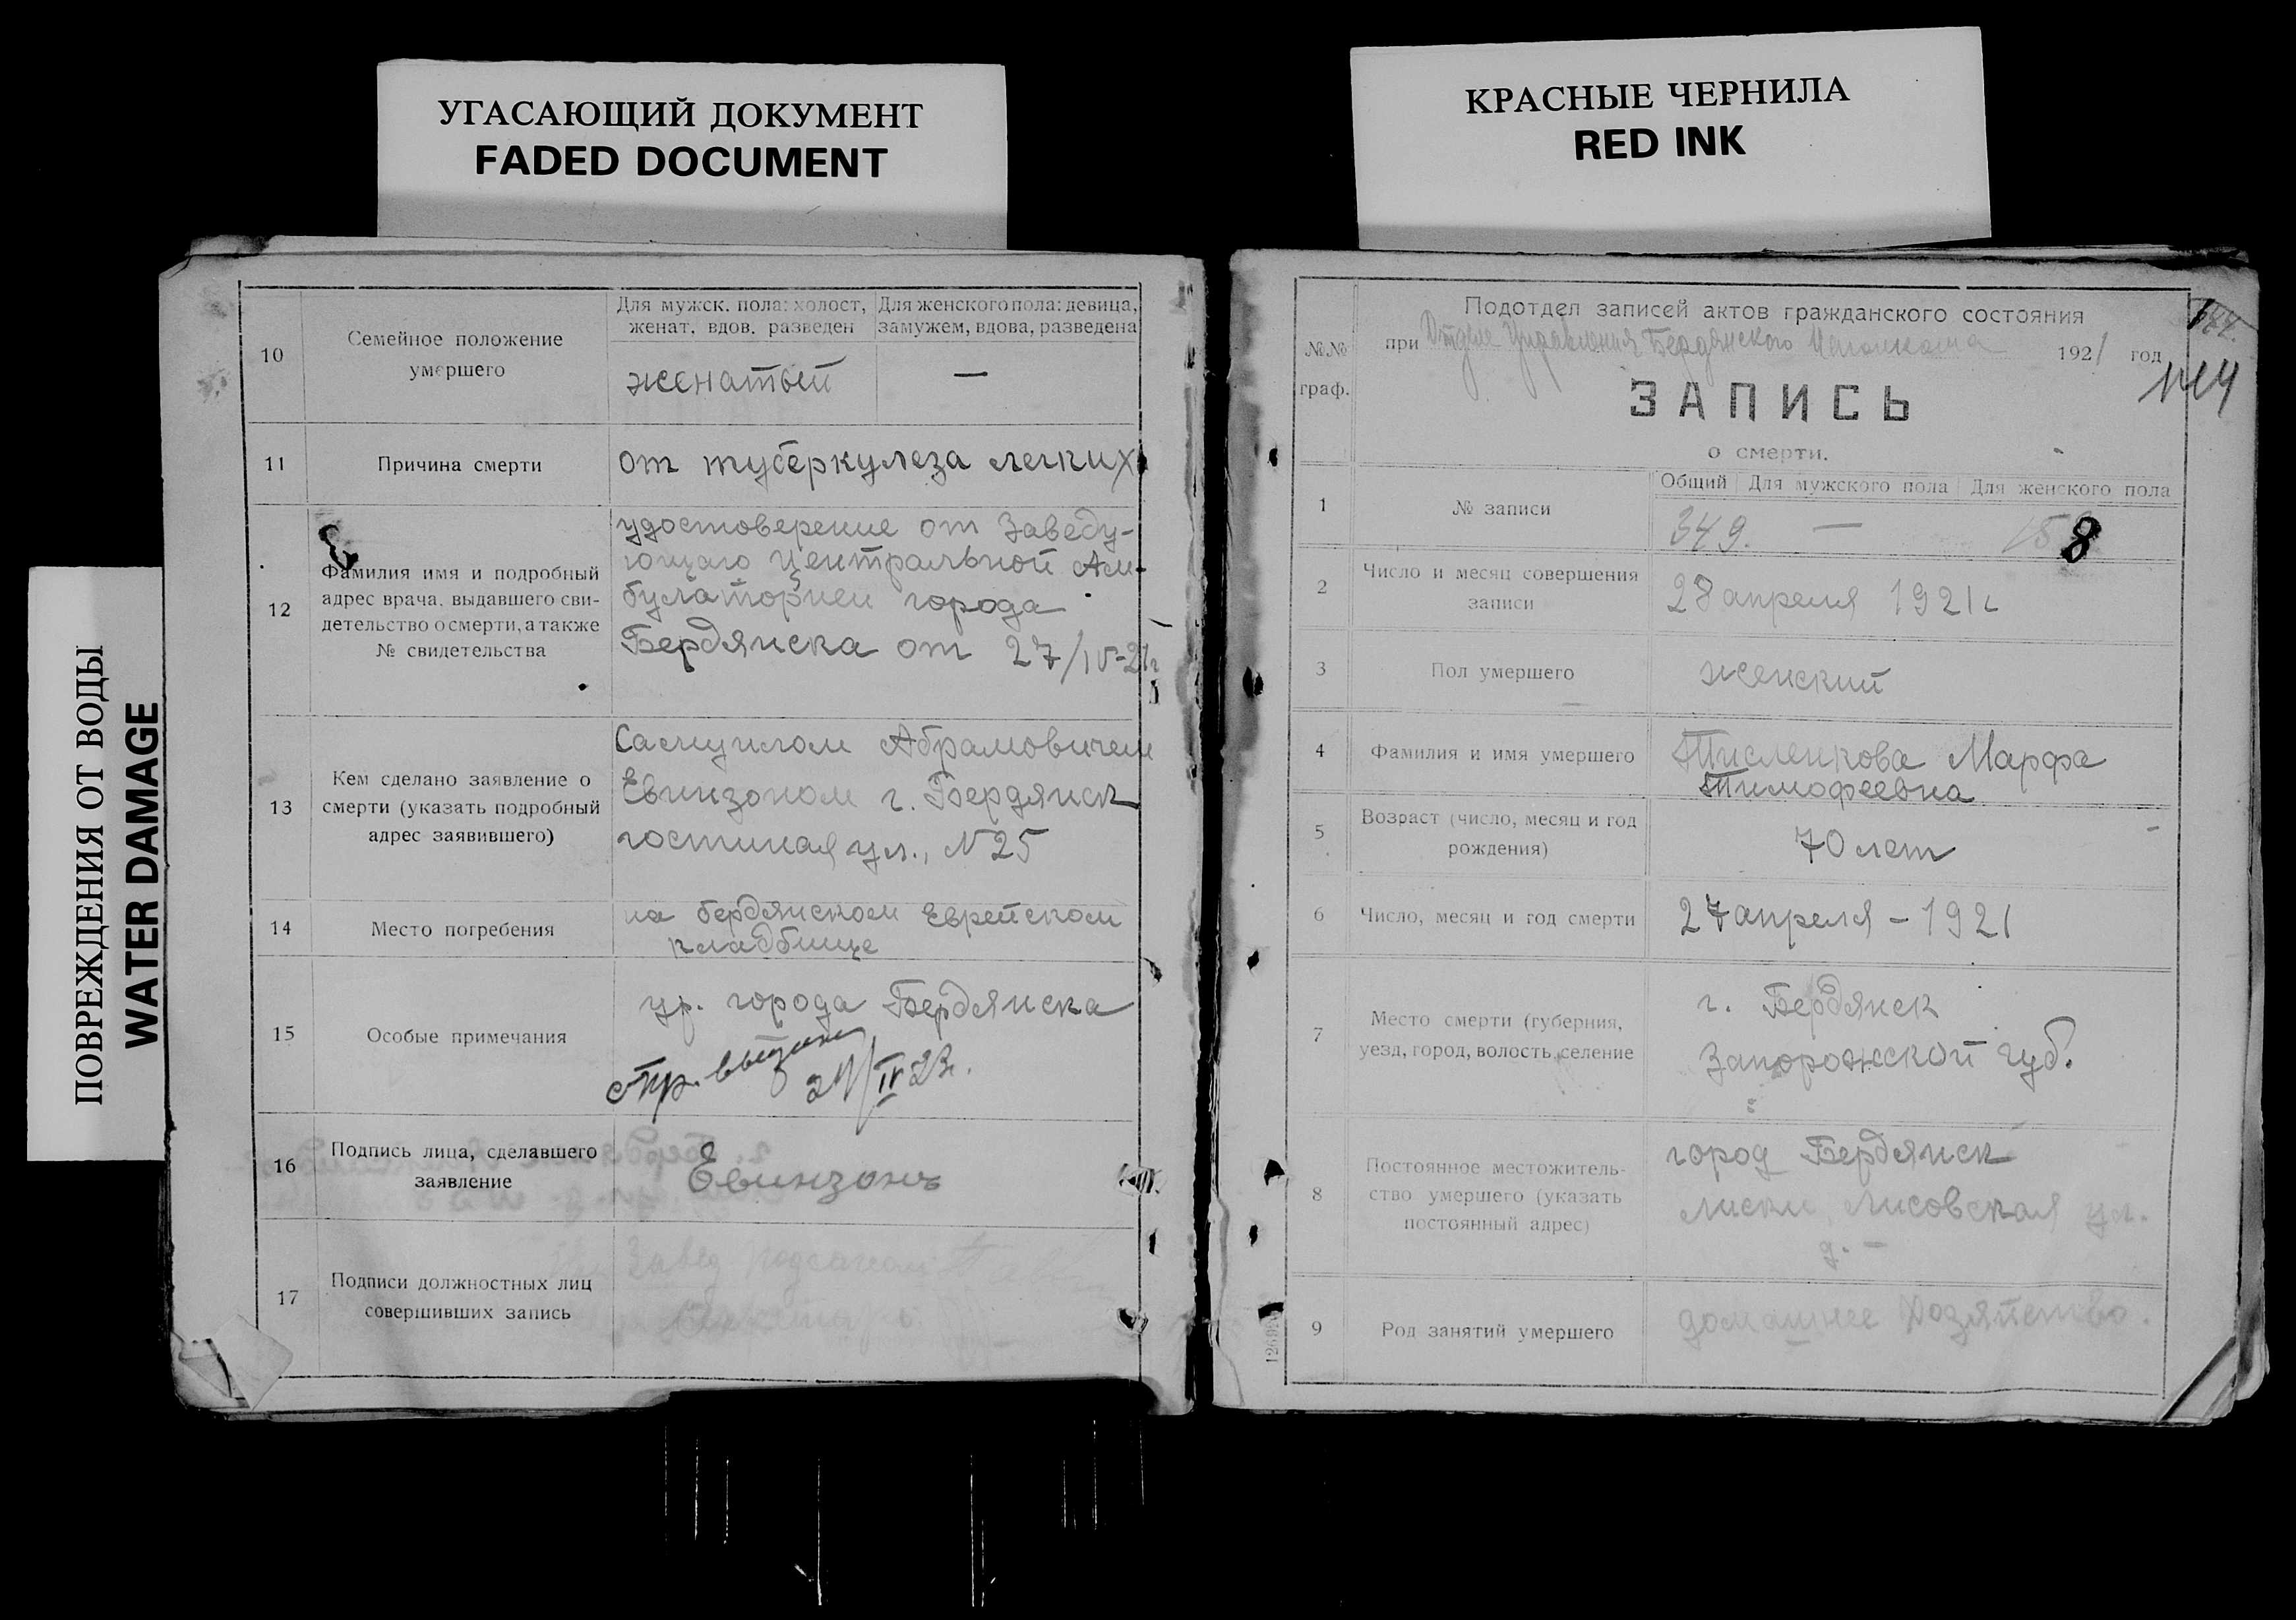 УГАСАЮЩИЙ ДОКУМЕНТ
FADED DOCUMENT
КРАСНЫЕ ЧЕРНИЛА
RED INK
ПОВРЕЖДЕНИЯ ОТ ВОДЫ
WATER DAMAGE
10
Семейное положение
умершего
Для мужск. пола: холост,
женат, вдов, разведен
Для женского пола: девица,
замужем, вдова, разведена
женатый
—
11
Причина смерти
от туберкулеза легких
12
Фамилия имя и подробный
адрес врача, выдавшего сви-
детельство о смерти, а также
№ свидетельства
удостоверение от Заведу-
ющаго Центральной Ам-
булаторией города
Бердянска от 27/IV-21г
13
Кем сделано заявление о
смерти (указать подробный
адрес заявившего)
Самуилом Абрамовичем
Евинзоном г. Бердянск
гостиная ул., N 25
14
Место погребения
на бердянском Еврейском
кладбище
15
Особые примечания
ур. города Бердянска
спр. выдана
IV 23.
16
Подпись лица, сделавшего
заявление
Евинзонъ
17
Подписи должностных лиц
совершивших запись
Завед
Секретарь
№№
граф.
Подотдел записей актов гражданского состояния
при Отделе Управления Бердянского 1921 год
ЗАПИСЬ
о смерти.
114
1
№ записи
Общий
Для мужского пола
Для женского пола
349.
—
158
2
Число и месяц совершения
записи
28 апреля 1921 г
3
Пол умершего
женский
4
Фамилия и имя умершего
Тисленкова Марфа
Тимофеевна
5
Возраст (число, месяц и год
рождения)
70 лет
6
Число, месяц и год смерти
27 апреля - 1921
7
Место смерти (губерния,
уезд, город, волость, селение
г. Бердянск
Запорожской губ.
8
Постоянное местожитель-
ство умершего (указать
постоянный адрес)
город Бердянск
Лиски, Лисовская ул.
д. —
9
Род занятий умершего
домашнее хозяйство.